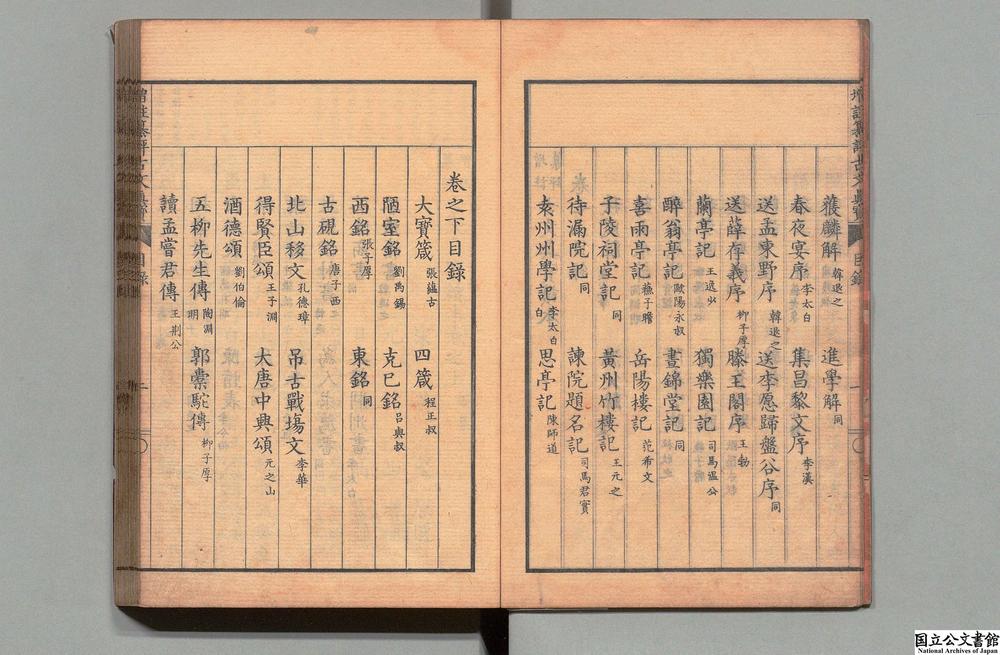 獲麟解 韓退之 進學解 同
春夜宴序 李太白 集昌黎文序 李漢
送孟東野序 韓退之 送李愿歸盤谷序 同
送薛存義序 柳子厚 滕王閣序 王勃
蘭亭記 王逸少 獨樂園記 司馬溫公
醉翁亭記 歐陽永叔 晝錦堂記 同
喜雨亭記 蘓子瞻 岳陽樓記 范希文
子陵祠堂記 同 黃州竹樓記 王元之
待漏院記 同 諫院題名記 司馬君實
袁州州學記 李太白 思亭記 陳師道
卷之下目録
大寶箴 張蘊古 四箴 程正叔
陋室銘 劉禹錫 克己銘 呂與叔
西銘 張子厚 東銘 同
古硯銘 唐子西
北山移文 孔德璋 吊古戰塲文 李華
得賢臣頌 王子淵 大唐中興頌 元之山
酒德頌 劉伯倫
五柳先生傳 陶淵明 郭橐駝傳 柳子厚
讀孟嘗君傳 王荆公
目録
一
目録
二
国立公文書館
National Archives of Japan